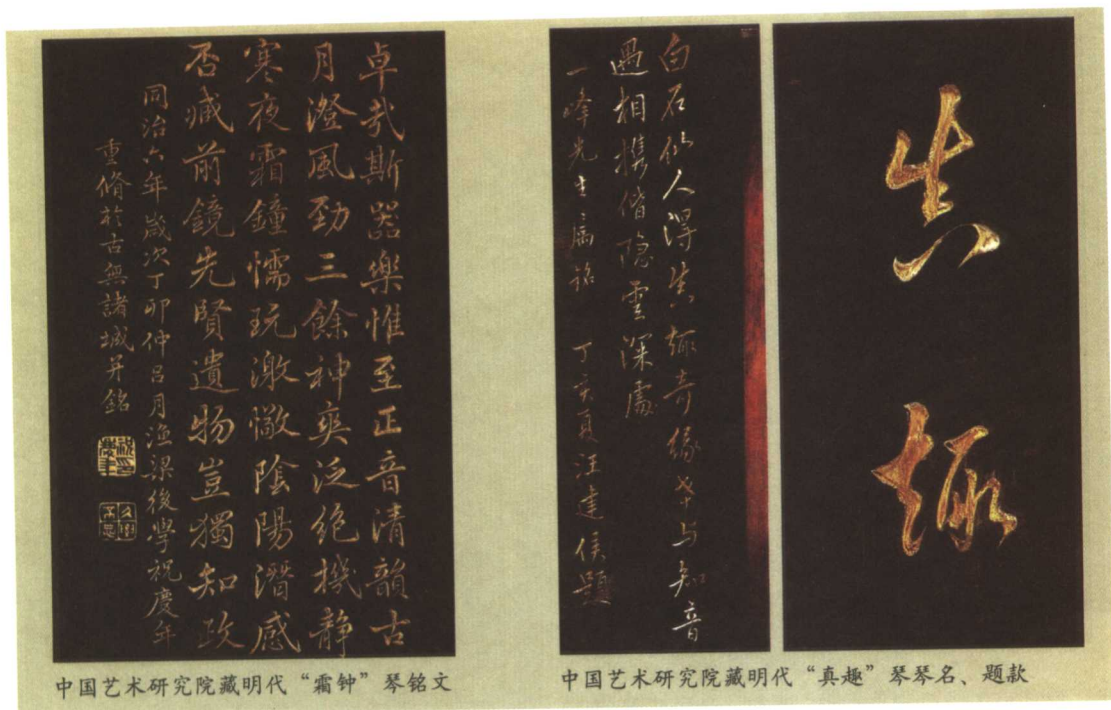 卓哉斯器樂惟至正音清韻古
月澄風勁三餘神爽泛絶機靜
寒夜霜鐘懦玩激懒陰陽潛感
否臧前鏡先賢遺物豈獨知政
同治六年歲次丁卯仲吕月漁梁後學祝慶年
重脩於古無諸城并銘
中国艺术研究院藏明代“霜钟”琴铭文
白石似人得真趣奇缘幸与知音
遇相携偕隐雲深處
一峰先生属銘 丁亥夏汪建侯題
真趣
中国艺术研究院藏明代“真趣”琴琴名、题款